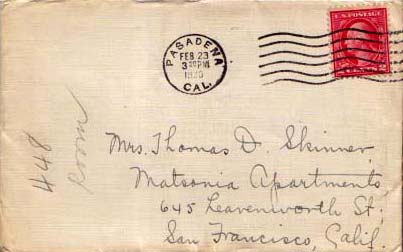 PASADENA
FEB 23
3 PM
1920
CAL.
U.S. POSTAGE
2 CENTS 2
448
Room
Mrs. Thomas D. Skinner,
Matsonia Apartments,
645 Leavenworth St.,
San Francisco, Calif.